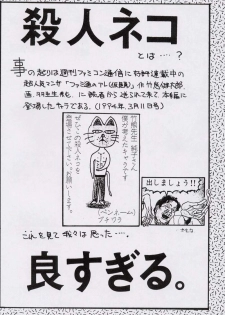 殺人ネコ
とは……?
事の起りは週刊ファミコン通信に好評連載中の
超人気マンガ「ファミ通のアレ(仮題)」作竹熊健太郎、
画、羽生生純、に読者から送られて来て本編に
登場したキャラである。(1994年3月11日号)
竹熊先生 純子さん
僕が考えたキャラです
ぜひこの殺人ネコを
登場させて下さいお願いします。
(ペンネーム)
出しましょう!!
これを見て我々は思った……。
良すぎる。